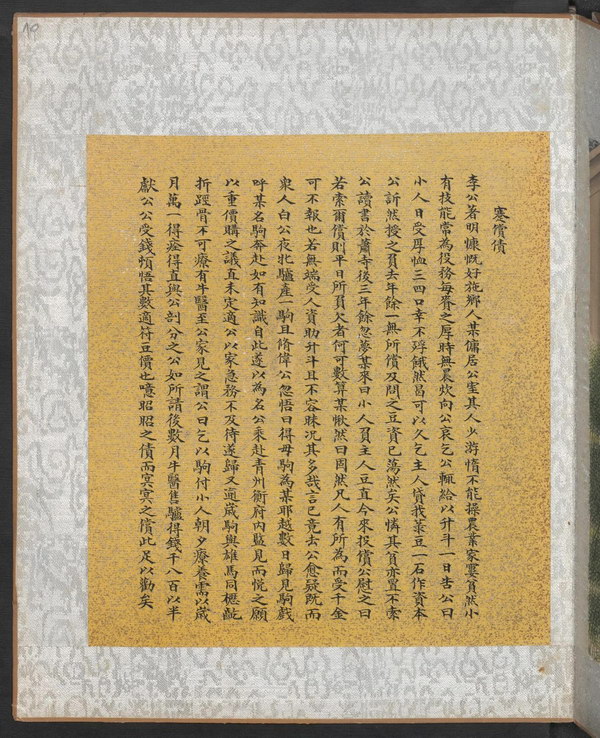 10
蹇償債
李公著明慷慨好施鄉人某傭居公室其人少游惰不能操農業家窶貧然小
有技能常為役務每賚之厚時無晨炊向公哀乞公輒給以升斗一日告公曰
小人日受厚恤三四口幸不殍餓然曷可以久乞主人貸我菉豆一石作資本
公訢然授之負去年餘一無所償及問之豆資已蕩然矣公憐其貧亦置不索
公讀書於蕭寺後三年餘忽夢某來曰小人負主人豆直今來投償公慰之曰
若索爾償則平日所負欠者何可數算某愀然曰固然凡人有所為而受千金
可不報也若無端受人資助升斗且不容昧況其多哉言已竟去公愈疑既而
家人白公夜牝驢產一駒且脩偉公忽悟曰得毋駒為某耶越數日歸見駒戲
呼某名駒奔赴如有知識自此遂以為名公乘赴青州衡府內監見而悅之願
以重價購之議直未定適公以家急務不及待遂歸又逾歲駒與雄馬同櫪齕
折脛骨不可療有牛醫至公家見之謂公曰乞以駒付小人朝夕療養需以歲
月萬一得痊得直與公剖分之公如所請後數月牛醫售驢得錢千八百以半
獻公公受錢頓悟其數適符豆價也噫昭昭之債而冥冥之償此足以勸矣